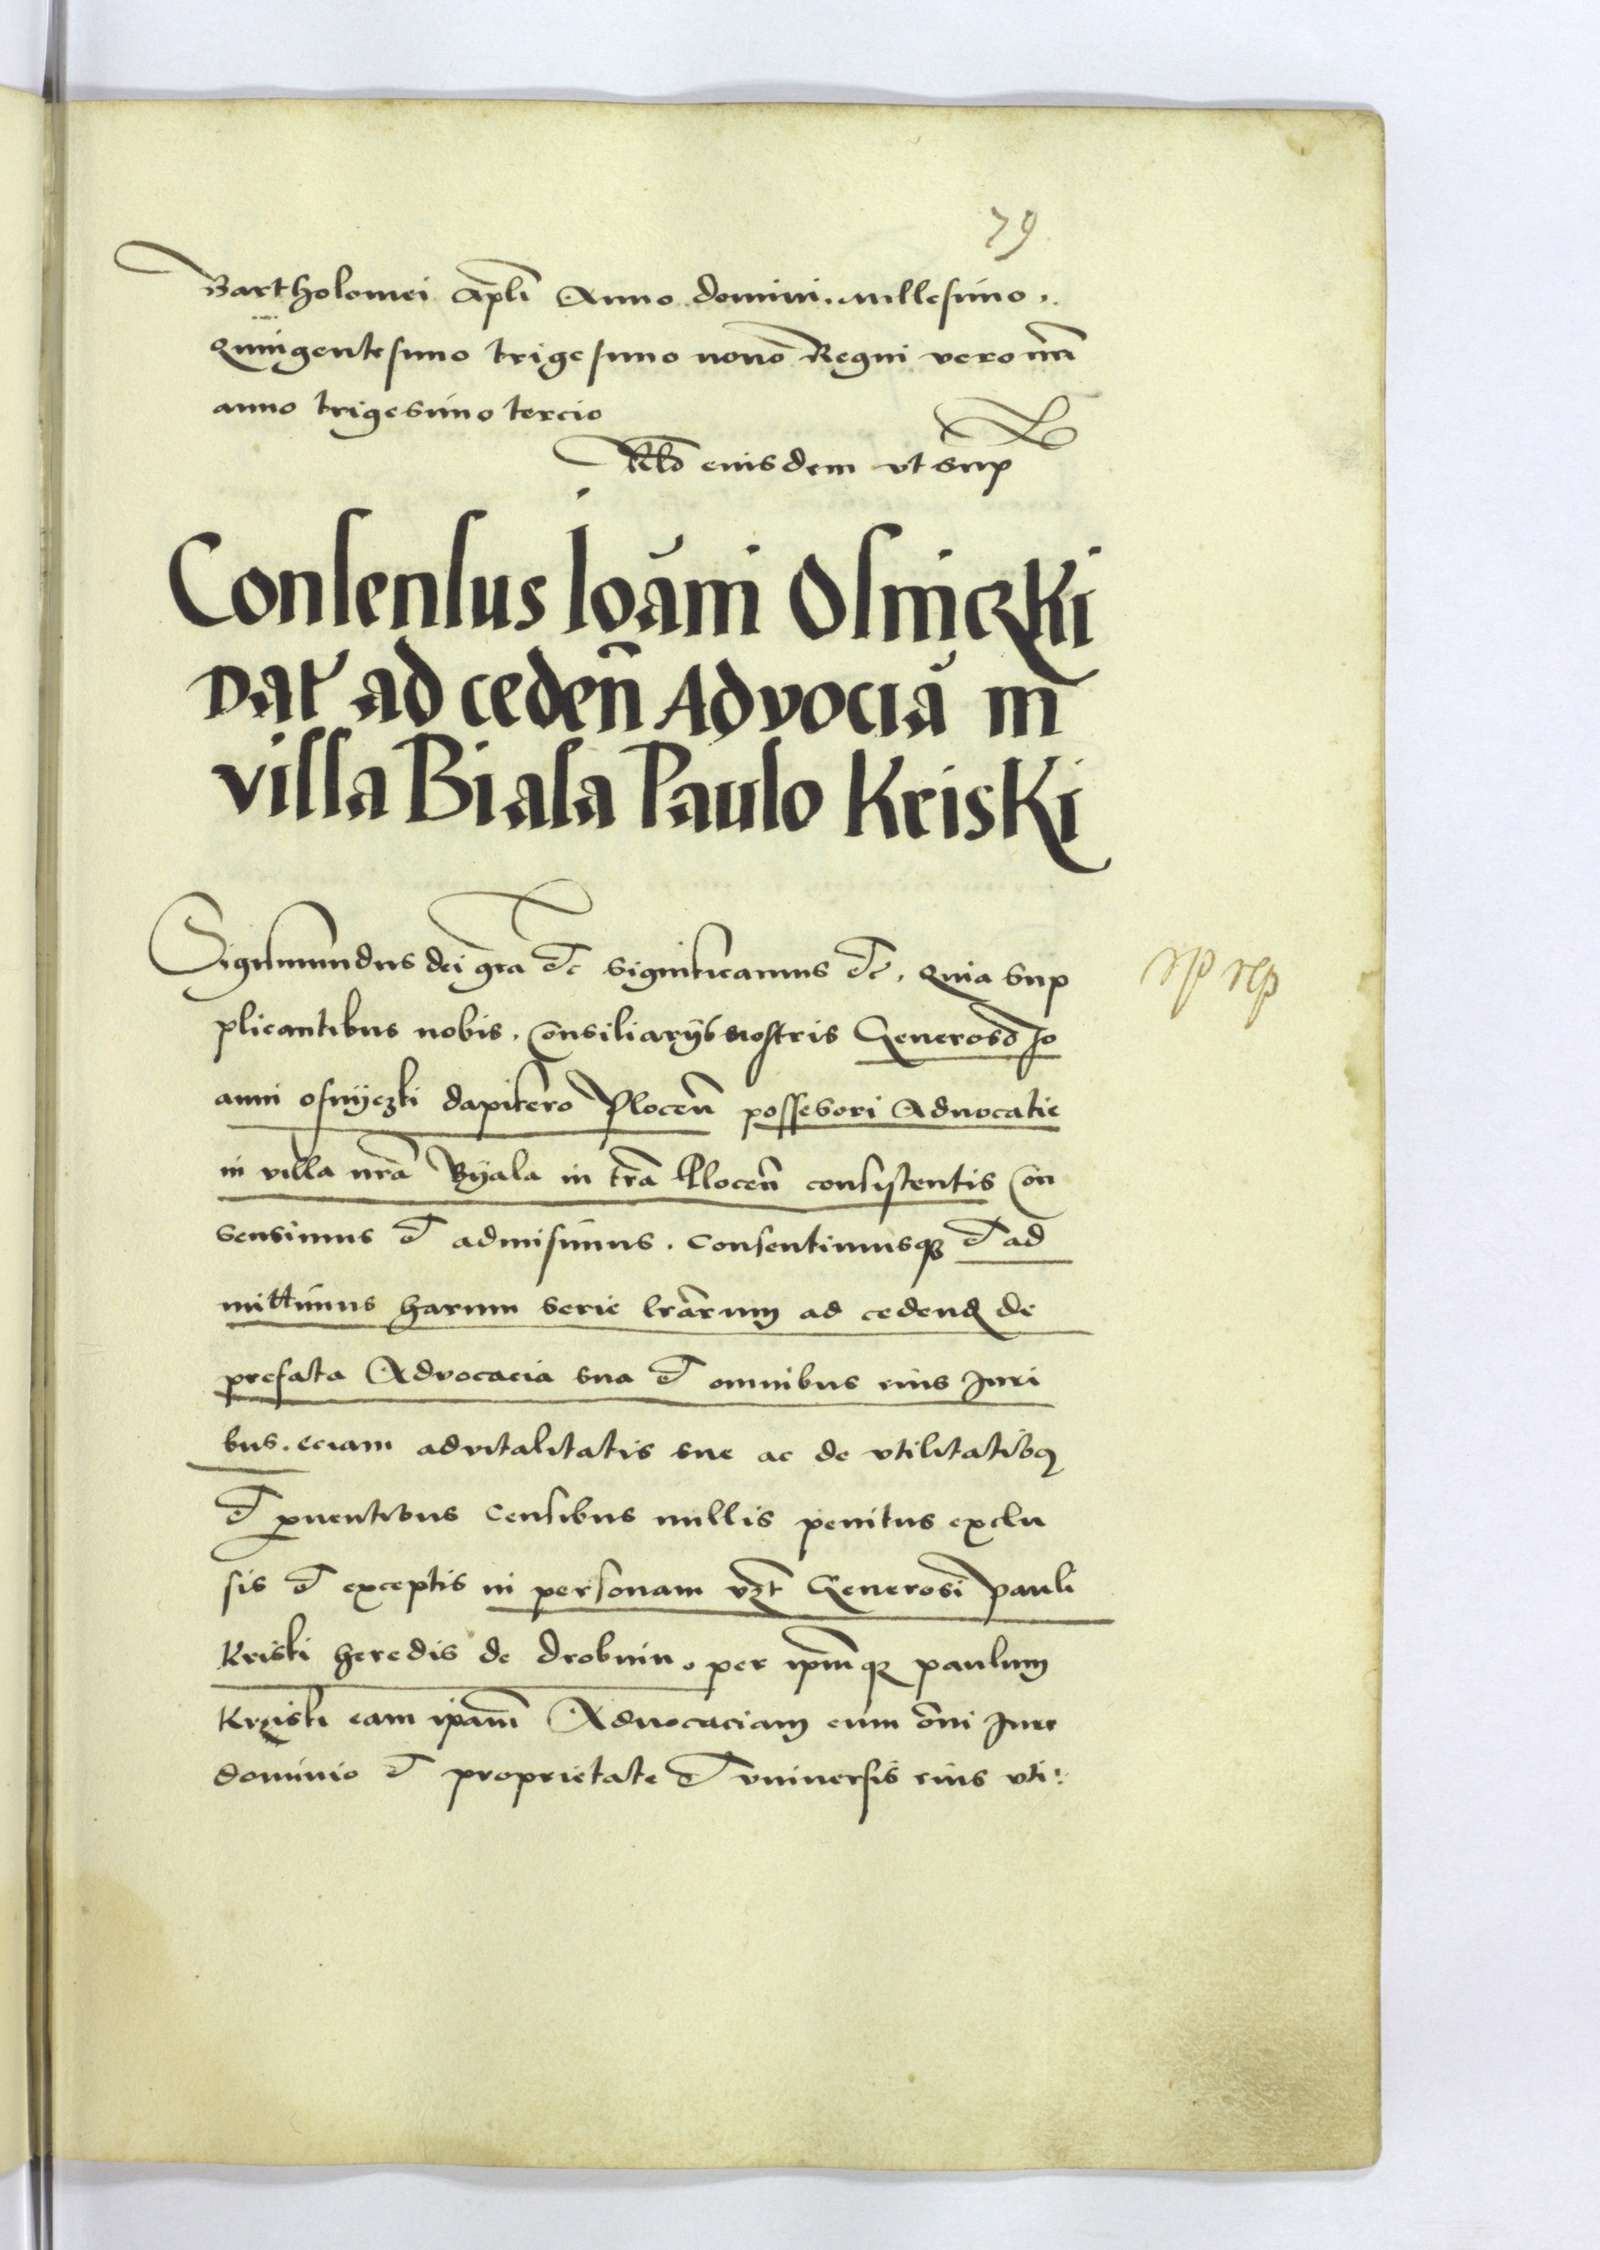 79
Bartholomei Apłi Anno domini. millesimo.
Quingentesimo trigesimo nono Regni vero nri
anno trigesimo tercio
Rło eiusdem vt sup
Consensus Ioãni Osniczki
Dať ad cedeñ Advociã in
villa Biala Paulo Kriski
Sigismundus dei gra &c significamus &c. Quia sup
plicantibus nobis. Consiliarys nostris Generoso Jo
anni osnyczki dapifero Plocen possessori Aduocatie
in villa nra Byala in tra Plocen consistentis Con
sensimus et admisimus. Consentimusq et ad
mittimus harum serie lrarum ad cedend de
prefata Advocacia sua et omnibus eius Juri
bus. eciam advitalitatis sue ac de vtilitatibq
et puentibus censibus nullis penitus exclu
sis et exceptis in personam vzt Generosi Pauli
Kriski heredis de Drobnin. per ipmq paulum
Krziski eam ipam Aduocaciam cum omi Jure
dominio et proprietate et vniuersis eius vti: